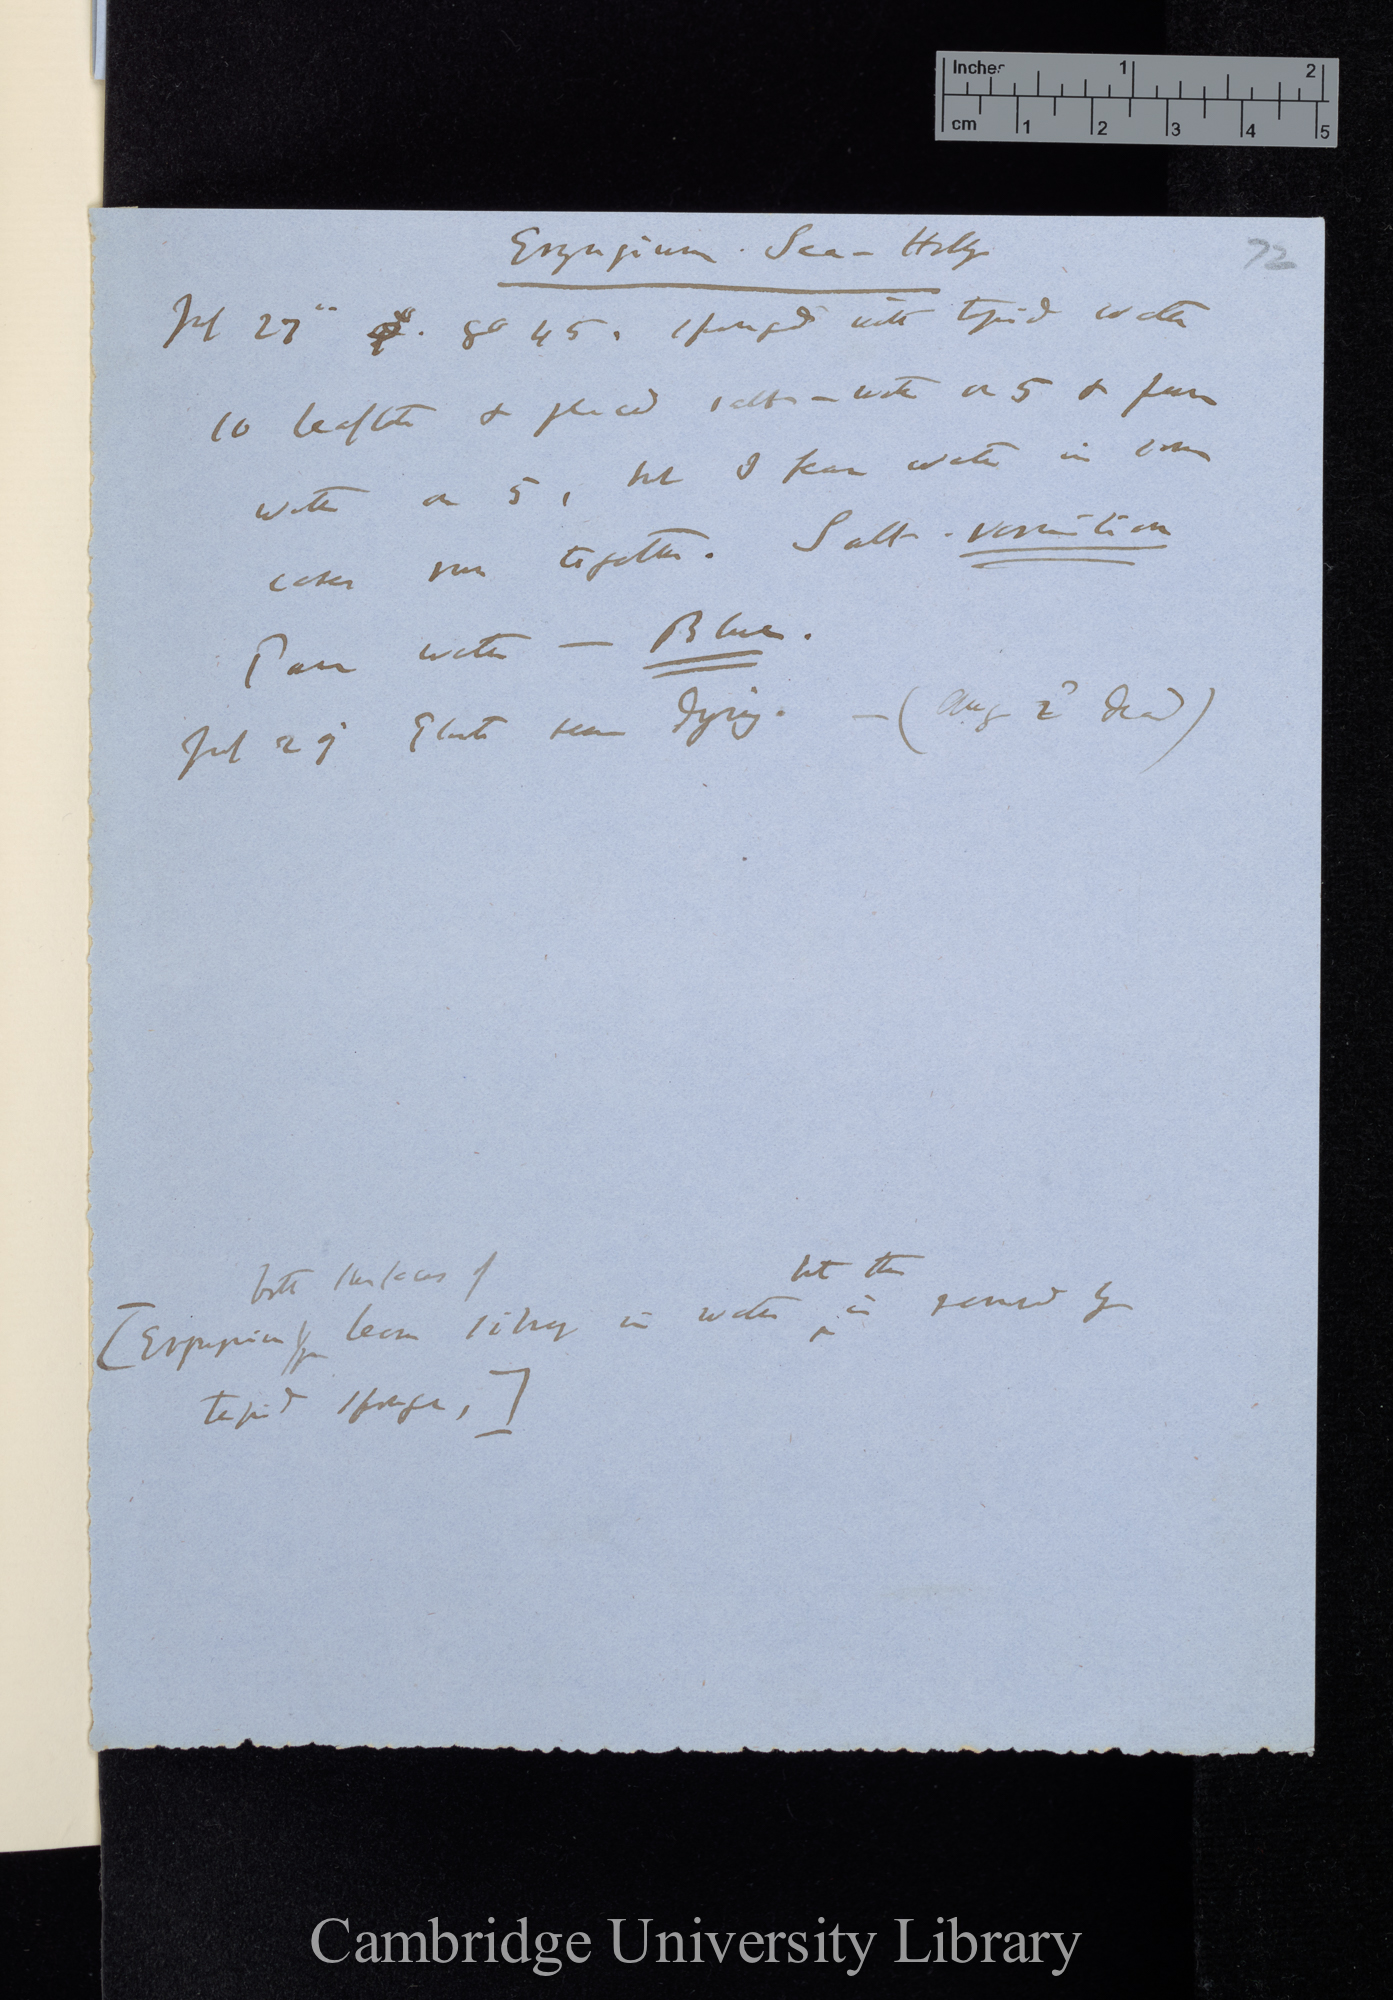 Inches 1 2
cm 1 2 3 4 5
72
Eryngium. Sea-Holly
Jul 27th 8° 45'. sponged with tepid water
10 leaflets & placed salt-water on 5 & pure
water on 5, but I fear water in some
cases run together. Salt-vermilion
Pure water — Blue.
Jul 29 Plants seem dying. — (Aug 2d dead)
both surfaces of but this
[Eryngium leaves silvery in water ^ is removed by
tepid sponge,]
Cambridge University Library